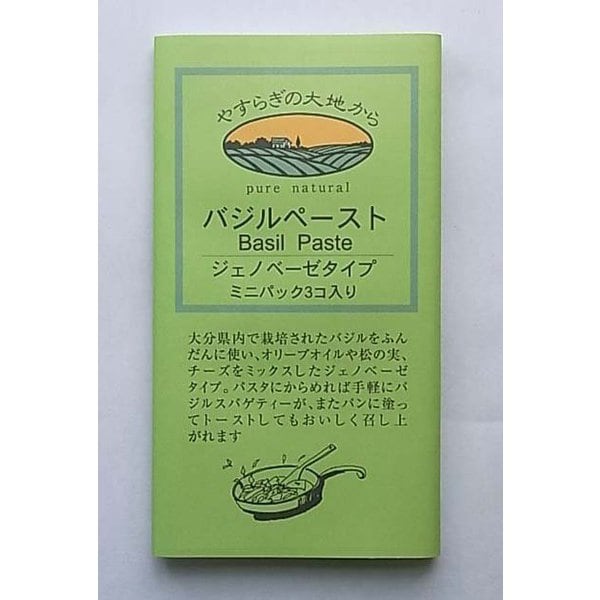 やすらぎの大地から
pure natural
バジルペースト
Basil Paste
ジェノベーゼタイプ
ミニパック3コ入り
大分県内で栽培されたバジルをふん
だんに使い、オリーブオイルや松の実、
チーズをミックスしたジェノベーゼ
タイプ。パスタにからめれば手軽にバ
ジルスパゲティーが、またパンに塗っ
てトーストしてもおいしく召し上
がれます